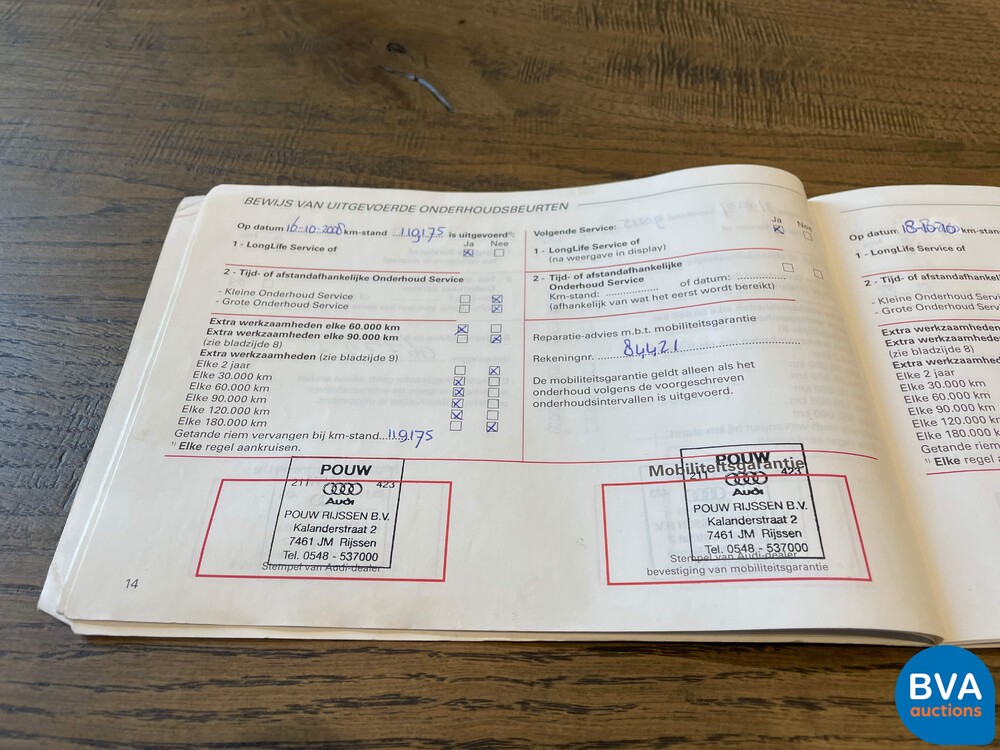 BEWIJS VAN UITGEVOERDE ONDERHOUDSBEURTEN
Op datum 16-10-2008 km-stand ...119175 is uitgevoerd¹⁾:
Ja Nee
1 - LongLife Service of
2 - Tijd- of afstandafhankelijke Onderhoud Service
- Kleine Onderhoud Service
- Grote Onderhoud Service
Extra werkzaamheden elke 60.000 km
Extra werkzaamheden elke 90.000 km
(zie bladzijde 8)
Extra werkzaamheden (zie bladzijde 9)
Elke 2 jaar
Elke 30.000 km
Elke 60.000 km
Elke 90.000 km
Elke 120.000 km
Elke 180.000 km
Getande riem vervangen bij km-stand...119175
¹⁾ Elke regel aankruisen.
POUW
211 423
Audi
POUW RIJSSEN B.V.
Kalanderstraat 2
7461 JM Rijssen
Tel. 0548 - 537000
Stempel van Audi-dealer
14
Volgende Service:
Ja Nee
1 - LongLife Service of
(na weergave in display)
2 - Tijd- of afstandafhankelijke
Onderhoud Service
Km-stand: .................. of datum: ..............
(afhankelijk van wat het eerst wordt bereikt)
Reparatie-advies m.b.t. mobiliteitsgarantie
Rekeningnr. ......84421......
De mobiliteitsgarantie geldt alleen als het
onderhoud volgens de voorgeschreven
onderhoudsintervallen is uitgevoerd.
Mobiliteitsgarantie
POUW
211 423
Audi
POUW RIJSSEN B.V.
Kalanderstraat 2
7461 JM Rijssen
Tel. 0548 - 537000
Stempel van Audi-dealer
bevestiging van mobiliteitsgarantie
Op datum km-stan
1 - LongLife Service of
2 - Tijd- of afstandafha
- Kleine Onderhoud Serv
- Grote Onderhoud Serv
Extra werkzaamheden
Extra werkzaamheden
(zie bladzijde 8)
Extra werkzaamheden
Elke 2 jaar
Elke 30.000 km
Elke 60.000 km
Elke 90.000 km
Elke 120.000 km
Elke 180.000 k
Getande riem ve
¹⁾ Elke regel a
BVA
auctions